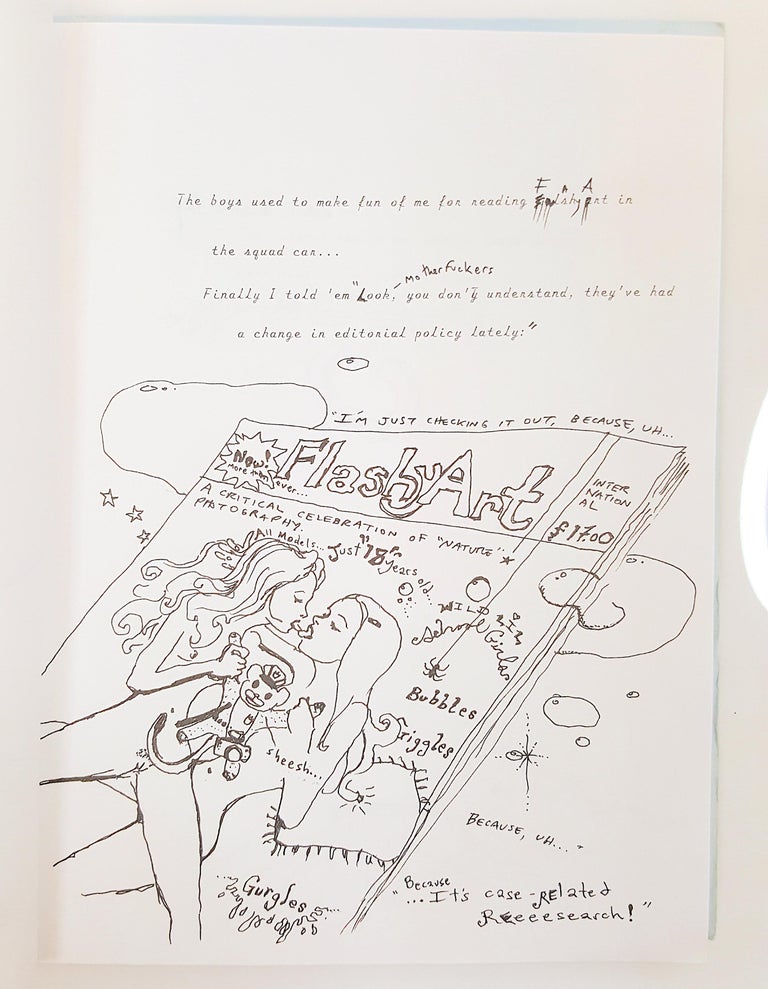 F A
The boys used to make fun of me for reading Flashy Art in
the squad car...
Motherfuckers
Finally I told 'em "Look, you don't understand, they've had
a change in editorial policy lately:"
"I'M JUST CHECKING IT OUT, BECAUSE, UH...
Now!
More than ever...
FlashyArt
INTER
NATION
AL
$17.00
A CRITICAL CELEBRATION OF "NATURE"
PHOTOGRAPHY.
All Models... Just "18" Years old...
WILD
School Girls
Bubbles
Giggles
sheesh...
BECAUSE, UH...
Gurgles
Because
"...It's case-RElated
Reeeesearch!"